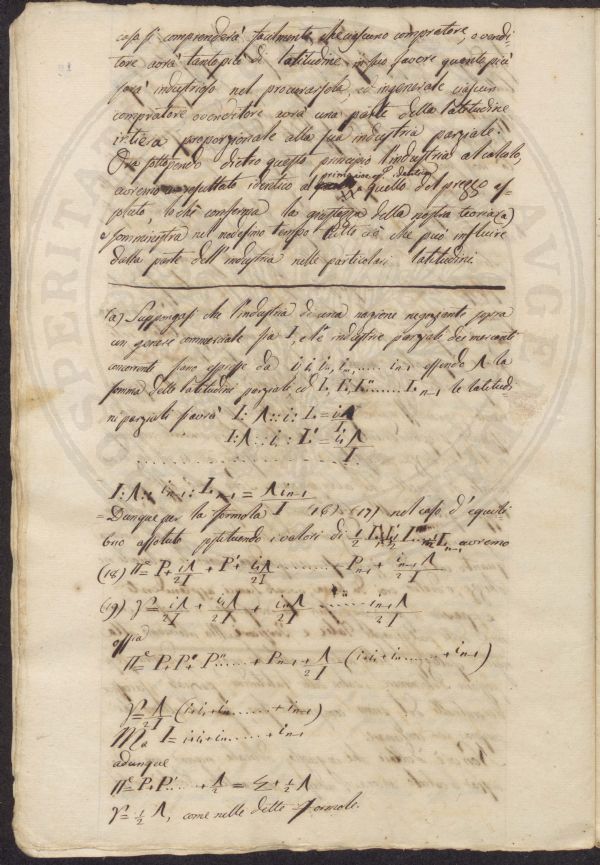 cosa si comprenderà facilmente che ciascuno compratore, o vendi-
tore avrà tanto più di latitudine in suo favore quanto più
sarà industrioso nel procurarsela, ed in generale ciascun
compratore o venditore avrà una parte della latitudine
intiera proporzionale alla sua industria parziale.
Ora sottoponendo dietro questo principio l'industria al calcolo,
avremo un resultato identico al quello del prezzo as-
soluto, lo chè conferma la giustezza della nostra teoria
e somministra nel medesimo tempo tutto ciò che può influire
dalla parte dell'industria nelle particolari latitudini.
(a) Suppongasi che l'industria di una nazione negoziante sopra
un genere commerciale sia I, e le industrie parziali dei mercanti
concorrenti siano espresse da i, i, i,, i,,, ..... in-1 essendo Λ la
somma delle latitudini parziali ed L, L', L'' ...... Ln-1 le latitudi
ni parziali si avrà I: Λ :: i: L = iΛ/I
I: Λ :: i,: L' = i,Λ/I
. . . . . . . . . . . . . . . . . .
I: Λ :: in-1: Ln-1 = Λin-1/I
= Dunque per la formola (16) (17) nel caso d'equili
brio assoluto sostituendo i valori di ½L, ½L', ½L'' ... ½Ln-1 avremo
(18) Π = P + iΛ/2I + P' + i,Λ/2I ........ Pn-1 + in-1Λ/2I
(19) γ = iΛ/2I + i,Λ/2I + i,,Λ/2I ........ in-1Λ/2I
ossia
Π = P + P' + P'' ..... + Pn-1 + Λ/2I (i+i,+i,,...... + in-1)
γ = Λ/2I (i+i,+i,,........ + in-1)
Ma I = i+i,+i,,....... + in-1
adunque
Π = P + P' ...... + Λ/2 = Σ + ½Λ
γ = ½Λ, come nelle dette formole.